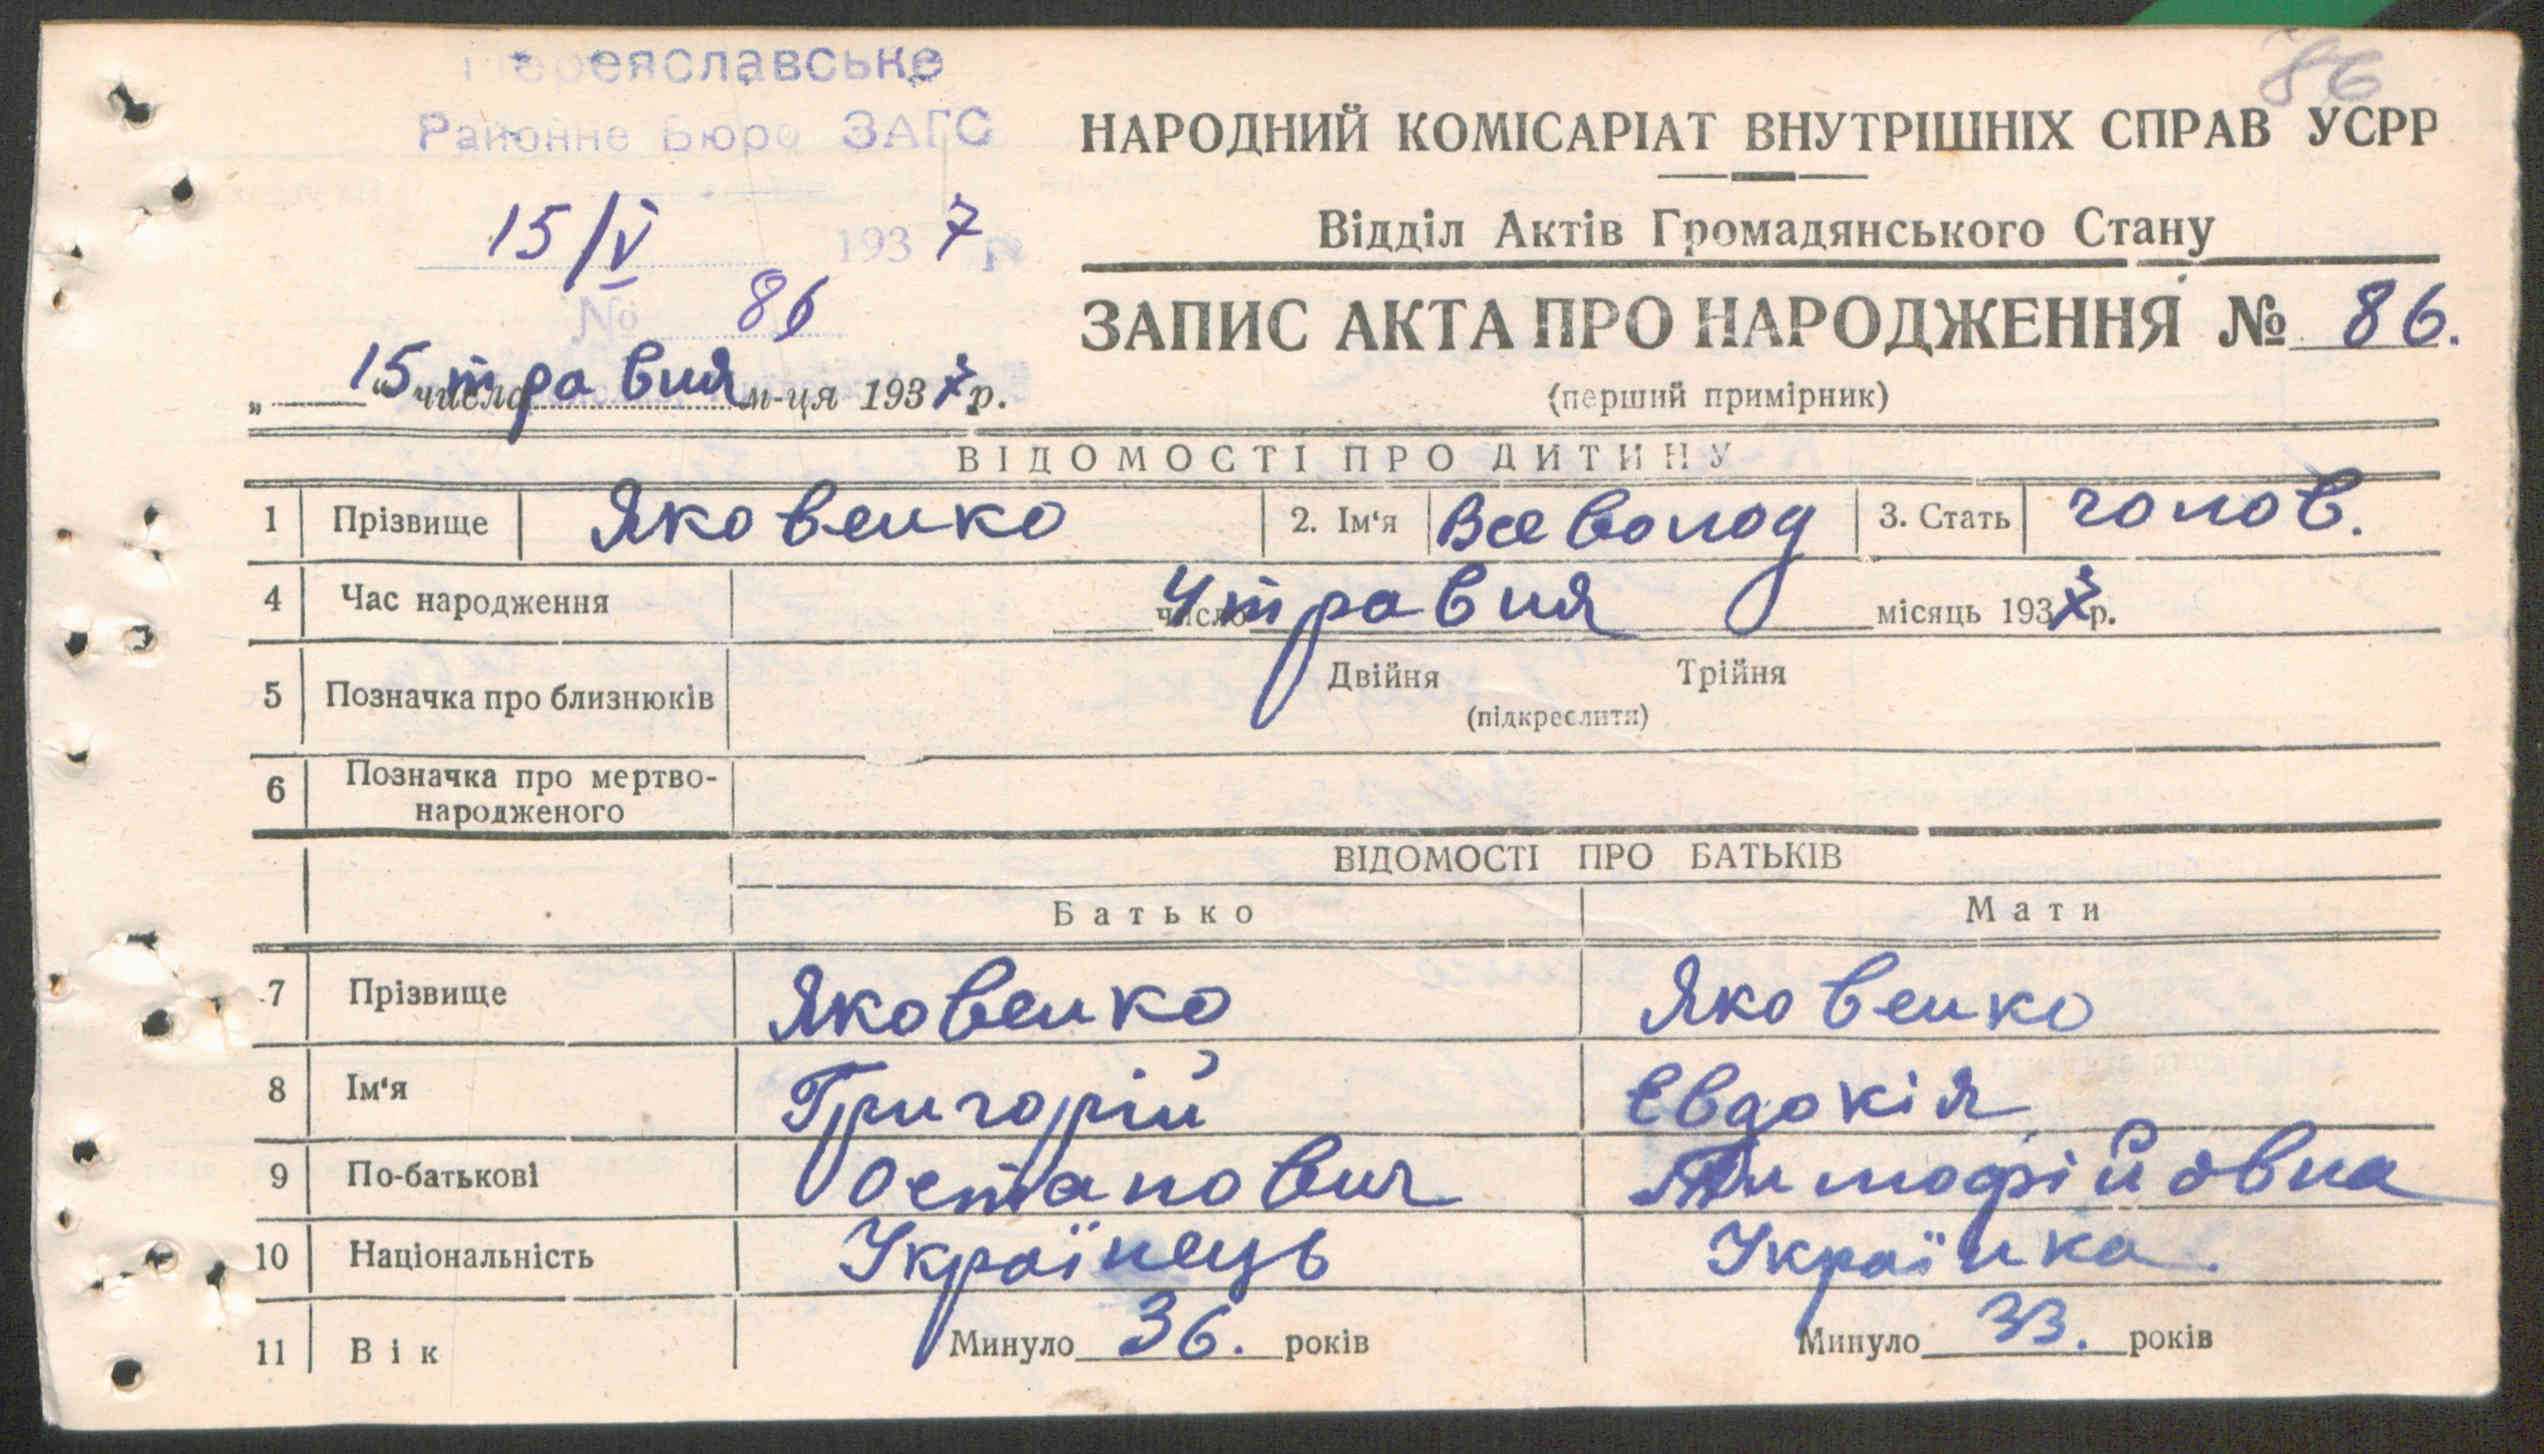 86
Переяславське
Районне Бюро ЗАГС
15/V 1937 р
№ 86
„15“ числа травня м-ця 1937 р.
НАРОДНИЙ КОМІСАРІАТ ВНУТРІШНІХ СПРАВ УСРР
Відділ Актів Громадянського Стану
ЗАПИС АКТА ПРО НАРОДЖЕННЯ № 86.
(перший примірник)
ВІДОМОСТІ ПРО ДИТИНУ
1 Прізвище Яковенко 2. Ім‘я Всеволод 3. Стать голов.
4 Час народження 4 число травня місяць 1937 р.
5 Позначка про близнюків Двійня Трійня
(підкреслити)
6 Позначка про мертво-
народженого
ВІДОМОСТІ ПРО БАТЬКІВ
Батько Мати
7 Прізвище Яковенко Яковенко
8 Ім‘я Григорій Євдокія
9 По-батькові Остапович Тимофійовна
10 Національність Українець Українка.
11 Вік Минуло 36. років Минуло 33. років